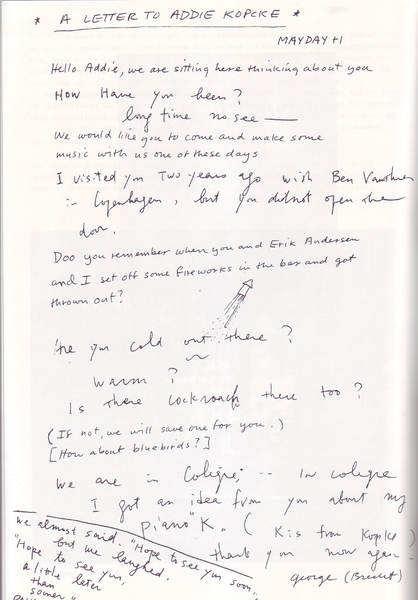 * A LETTER TO ADDIE KOPCKE *
MAYDAY +1
Hello Addie, we are sitting here thinking about you
How Have you been?
long time no see —
We would like you to come and make some
music with us one of these days
I visited you Two years ago with Ben
in Copenhagen, but you didnot open the
door.
Doo you remember when you and Erik Andersen
and I set off some fireworks in the bar and got
thrown out?
Are you cold out there?
warm?
Is there cockroach there too?
(If not, we will save one for you.)
[How about bluebirds?]
We are in Cologne; -- In cologne
I got an idea from you about my
piano "K. ( K is from Kopcke )
thank you now again.
george (Brecht)
we almost said. "Hope to see you soon,"
but we laughed.
"Hope to see you,
a little later
than
sooner"